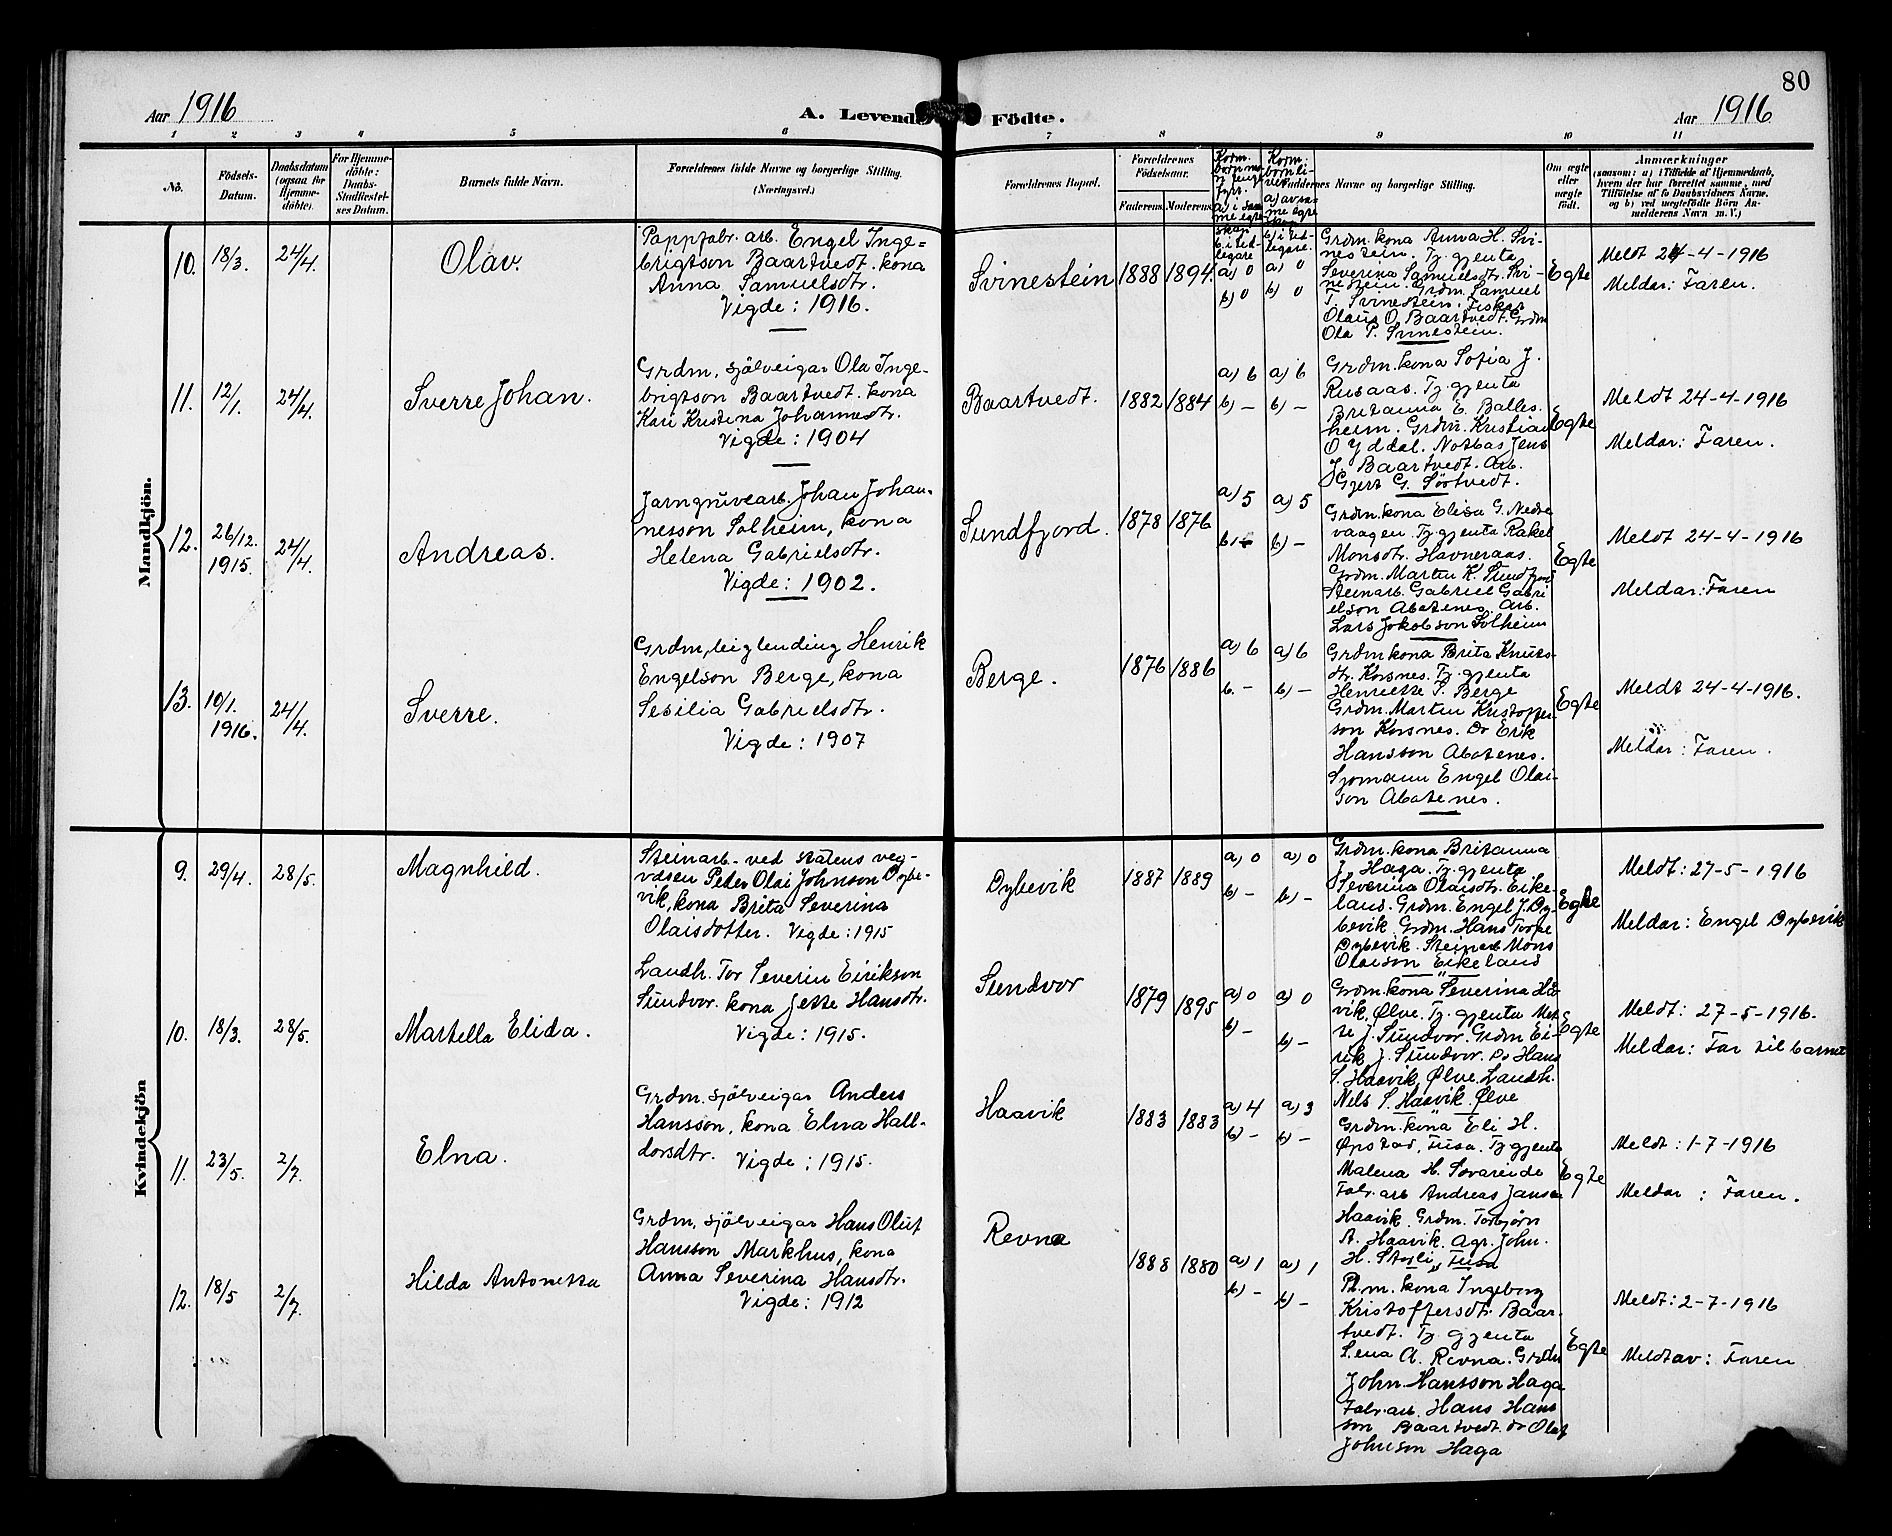 80
Aar 1916
A. Levende Födte.
Aar 1916
1 2 3 4 5 6 7 8 9 10 11
No.
Födsels-
Datum.
Daabsdatum
(ogsaa for
Hjemme-
döbte).
For Hjemme-
döbte:
Daabs-
Stadfæstel-
ses Datum.
Barnets fulde Navn.
Forældrenes fulde Navne og borgerlige Stilling.
(Næringsvei.)
Forældrenes Bopæl.
Forældrenes
Födselsaar.
Faderens.
Moderens.
Faddernes Navne og borgerlige Stilling.
Om ægte
eller
uægte
födt.
Anmærkninger
(saasom: a) i Tilfælde af Hjemmedaab,
hvem der har forrettet samme, med
Tilföielse af to Daabsvidners Navne,
og b) ved uægtefödte Börn An-
melderens Navn m. V.)
Mandkjön.
10.
18/3.
24/4.
Olav.
Pappfabr. arb. Engel Inge=
brigtson Baartvedt. kona
Anna Samuelsdtr.
Vigde: 1916.
Svinestein
1888
1894.
a) 0
b) 0
a) 0
b) 0
Grdm. kona Anna H. Svi-
nestein. Tj. gjenta
Severina Samuelsdtr. Svi-
nestein. Grdm. Samuel
T. Svinestein. Fiskar
Olaus O. Baartvedt. Grdm
Ola T. Svinestein.
Egte
Meldt 24-4-1916
Meldar: Faren.
11.
12/1.
24/4.
Sverre Johan.
Grdm, sjölveigar Ola Inge-
brigtson Baartvedt. kona
Kari Kristena Johannesdtr.
Vigde: 1904
Baartvedt.
1882
1884
a) 6
b) –
a) 6
b) –
Grdm. kona Sofia J.
Rusaas. Tj. gjenta
Britanna E. Balles-
heim. Grdm. Kristian
O Yddal. Notbas Jens
J. Baartvedt. Arb.
Gjert G. Sørtvedt.
Egte
Meldt 24-4-1916
Meldar: Faren.
12.
26/12.
1915.
24/4.
Andreas.
Jarngruvearb. Johan Johan-
nesson Solheim, kona
Helena Gabrielsdtr.
Vigde: 1902.
Sundfjord.
1878
1876
a) 5
a) 5
b) –
Grdm. kona Elisa G. Nedre
vaagen. Tj. gjenta Rakel
Monsdtr. Havneraas.
Grdm. Marten K. Sundfjord
Steinarb. Gabriel Gabri
elson Abotenes. Arb.
Lars Jokobson Solheim
Egte
Meldt 24-4-1916
Meldar: Faren
13.
10/1.
1916.
24/4.
Sverre.
Grdm, leiglending Henrik
Engelson Berge, kona
Sesilia Gabrielsdtr.
Vigde: 1907
Berge.
1876
1886
a) 6
b. –
a) 6
b) –
Grdm kona Brita Knuts-
dtr. Korsnes. Tj. gjenta
Henriette S. Berge
Grdm. Marten Kristoffer
son Korsnes. Do Erik
Hansson Abotenes.
Sjomann Engel Olai-
son Abotenes.
Egte
Meldt 24-4-1916.
Meldar: Faren.
Kvindekjön
9.
29/4.
28/5.
Magnhild.
Steinarb. ved statens veg-
væsen Peder Olai Johnson Dybe-
vik, kona Brita Severina
Olaisdotter. Vigde: 1915
Dybevik
1887
1889
a) 0
b) –
a) 0
b) –
Grdm. kona Britanna
J. Haga. Tj. gjenta
Severina Olaisdtr. Eike-
land. Grdm. Engel J. Dy-
bevik. Grdm. Hans Torpe
Dybevik. Steinarb Mons
Olaison Eikeland
Egte
Meldt: 27-5-1916
Meldar: Engel Dybevik
10.
18/3.
28/5.
Martella Elida.
Landh. Tor Severin Eirikson
Sundvor. kona Jette Hansdtr.
Vigde: 1915.
Sundvor
1879
1895
a) 0
b) –
a) 0
b) –
Grdm. kona Severina Haa
vik, Ølve. Tj. gjenta Met
te J. Sundvor. Grdm Ei-
rik J. Sundvor. Do Hans
S. Haavik, Ølve. Landh.
Nels S. Haavik. Ølve
Egte
Meldt: 27-5-1916.
Meldar: Far til barnet
11.
23/5.
2/7.
Elna.
Grdm. sjölveigar Anders
Hansson, kona Elna Hall-
dorsdtr. Vigde: 1915.
Haavik
1883
1883
a) 4
b) –
a) 3
b) –
Grdm. kona Eli H.
Øpstad, Fusa. Tj gjenta
Malena H. Sovareide
Fabr. arb Andreas Jansen
Haavik. Grdm. Torbjørn
A. Haavik. Agr. John.
H. Storli, Fusa
Egte
Meldt: 1-7-1916
Meldar: Faren.
12.
18/5
2/7.
Hilda Antonetta
Grdm, sjölveigar Hans Oluf
Hansson Markhus, kona
Anna Severina Hansdtr.
Vigde: 1912
Revna
1888
1880
a) 1
b) –
a) 1
b) –
Pl. m. kona Ingeborg
Kristoffersdtr. Baar-
tvedt. Tj. gjenta
Sena A. Revna. Grdm
John Hansson Haga
Fabr. arb. Hans Hans
son Baartvedt. do Olaf
Johnson Haga
Egte
Meldt: 2-7-1916
Meldt av: Faren